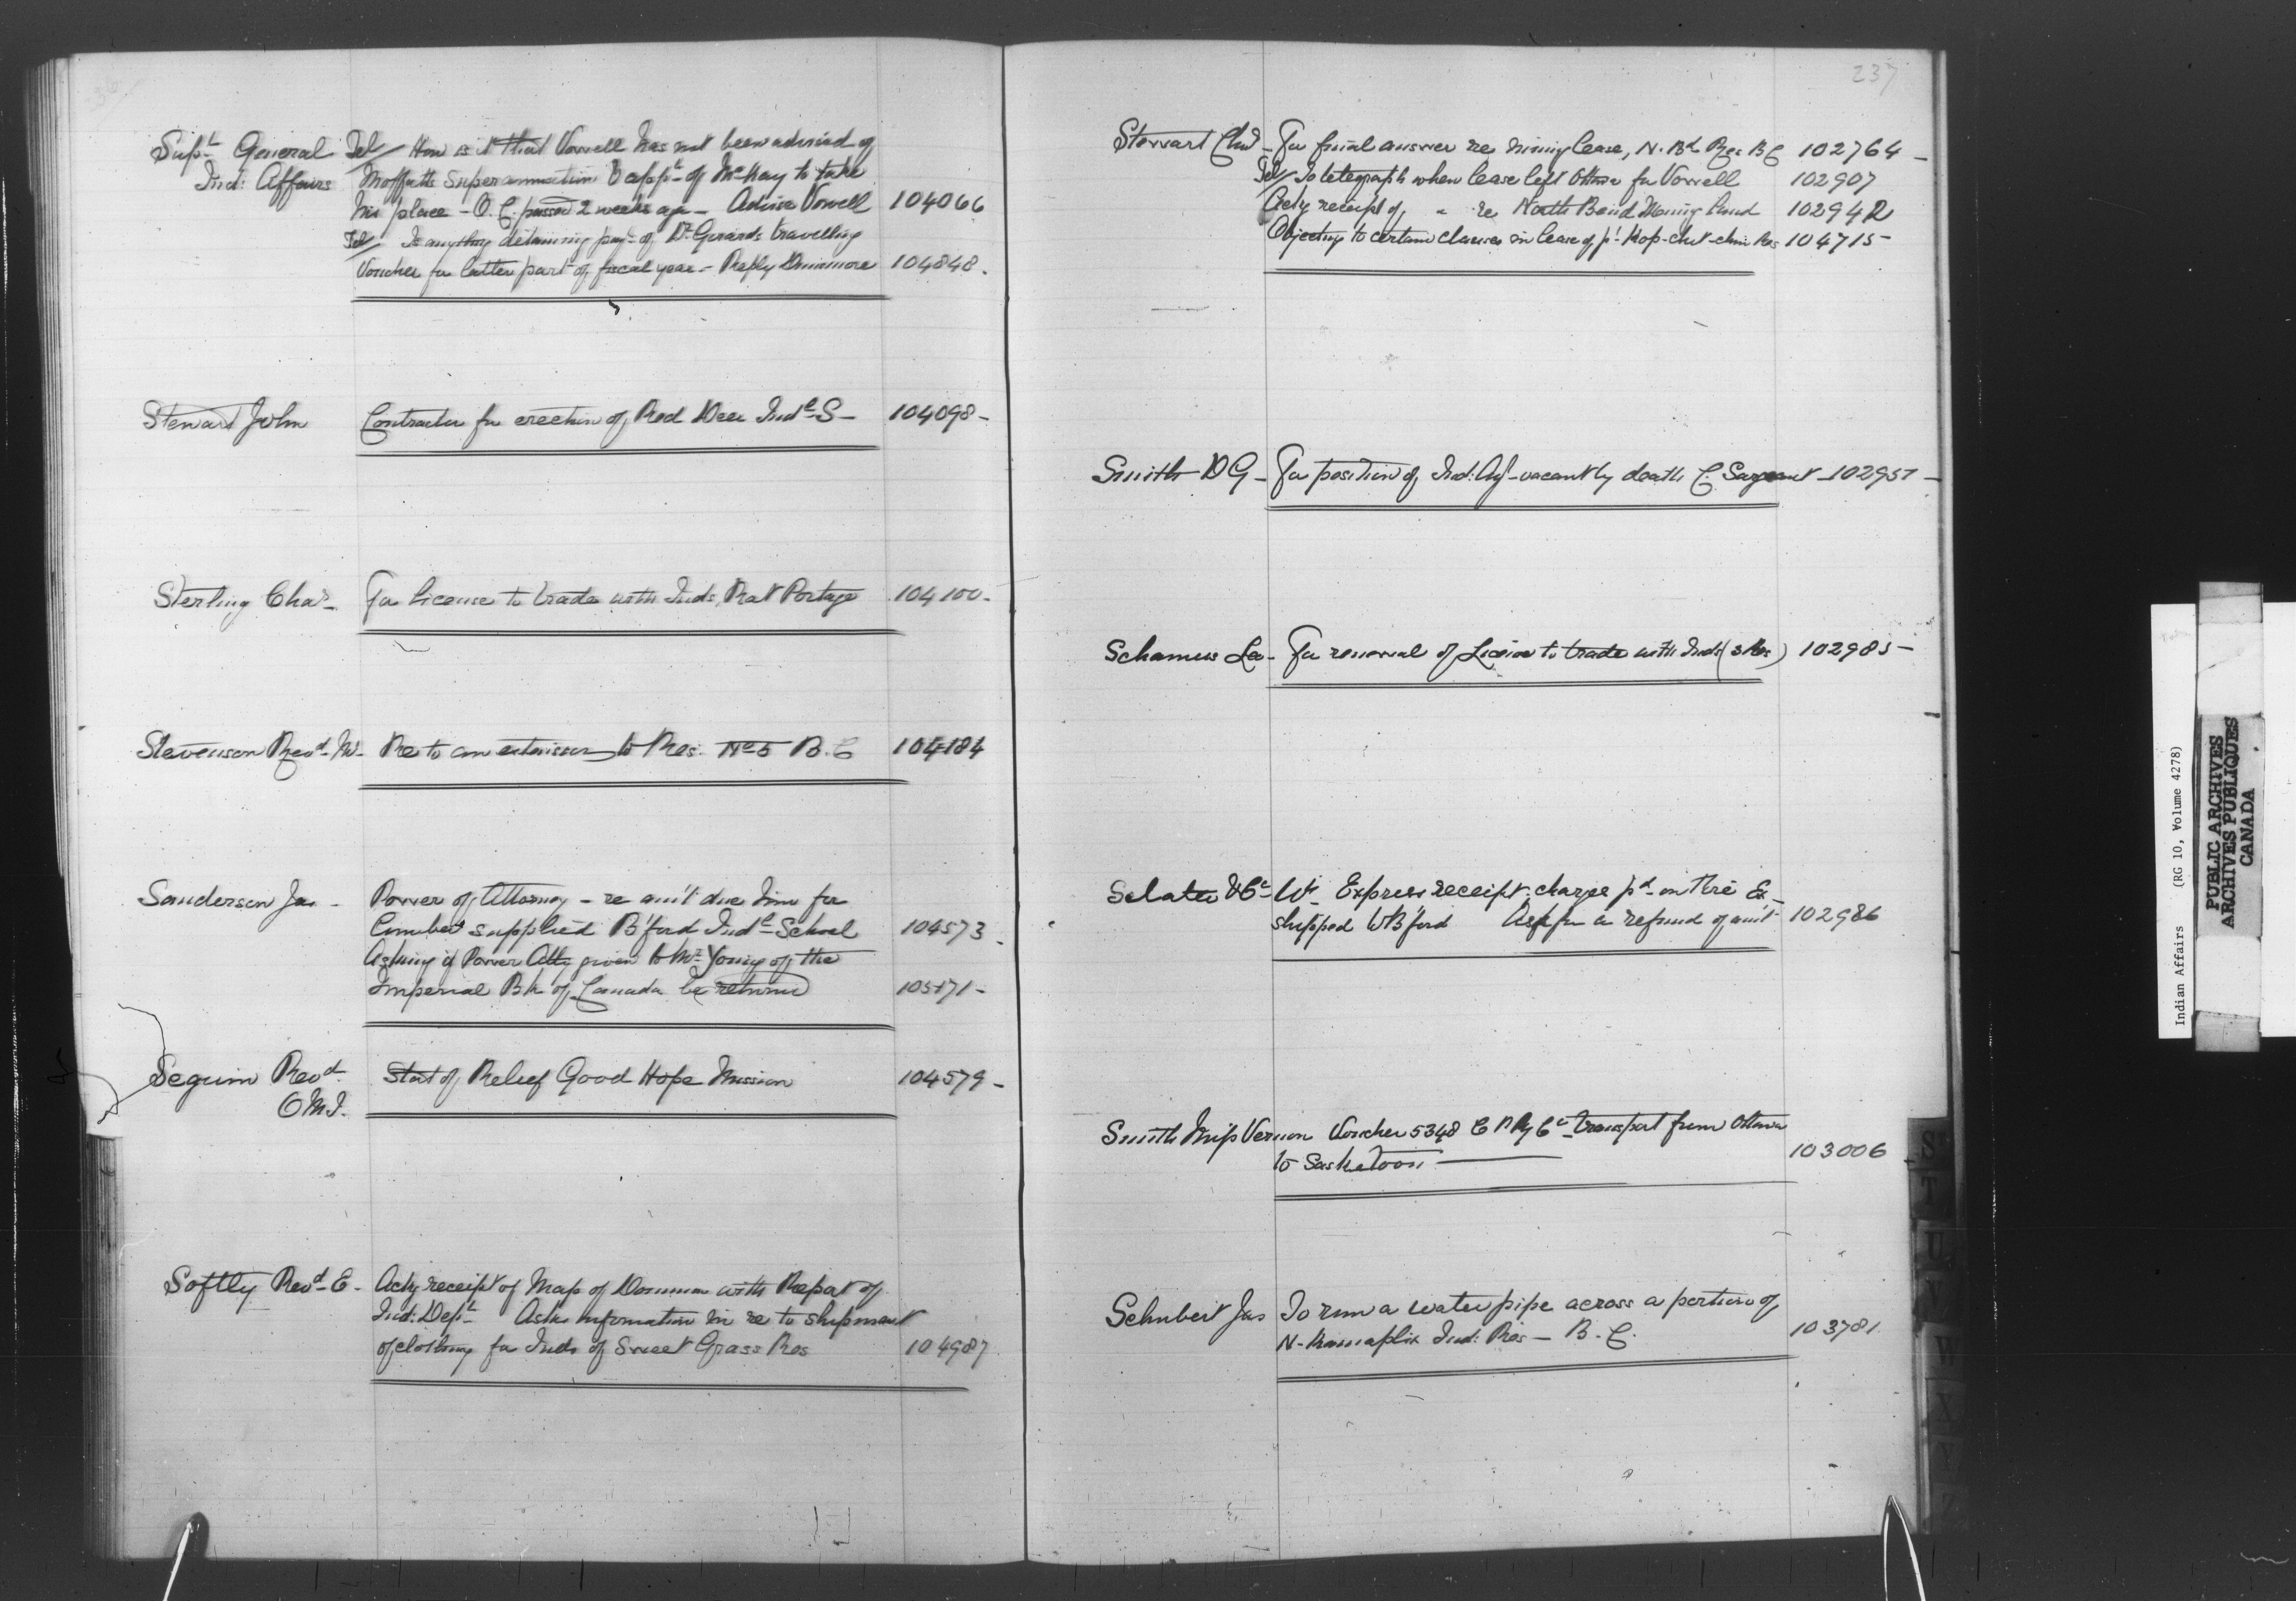 36
Supt General Tel/ How is it that Vowell has not been advised of
Ind: Affairs Moffatts superannuation & appt of McKay to take
his place - O.C. passed 2 weeks ago - Advise Vowell 104066
Tel/ Is anything detaining payt of Dr Girards travelling
Voucher for latter part of fiscal year - Reply Dinsmore 104848.
Steward John Contractor for erection of Red Deer Indl S - 104098 -
Sterling Chas - For license to trade with Inds, Rat Portage 104100 -
Stevenson Revd M - Re to an extension to Res. No 5 B.C 104184
Sanderson Jas - Power of Attorney - re am't due him for
Lumber supplied B'ford Indl School 104573
Asking if Power Atty given to Mr Young of the
Imperial Bk of Canada be returned 105171 -
Seguin Revd. Stat of Relief Good Hope Mission 104579 -
O M I.
Softly Revd E - Ackg receipt of Map of Dominion with Report of
Ind: Dept - Asks information in re to shipment
of clothing for Inds of Sweet Grass Res 104987
237
Stewart Chas - For final answer re mining lease, N. Bd Res B C 102764 -
Tel/ To telegraph when lease left Ottawa for Vowell 102907
Ackg receipt of " re North Bend Mining Land 102942
Objecting to certain clauses in lease of pt Kop-chit-chin Res 104715 -
Smith D G - For position of Ind: Agt - vacant by death C. Sargeant - 102957 -
Schamus Lo - For renewal of License to trade with Inds (3 Res) 102985 -
Sclater & Co - W. Express receipt; charge pd on Wire &
shipped to B'ford Ask for a refund of am't 102986
Smith Miss Vernon Voucher 5348 C P Ry Co - transport from Ottawa
to Saskatoon 103006
Schubert Jas To run a water pipe across a portion of
N. Kamaplix Ind: Res - B.C. 103781
S
T
U
V
W
X
Y
Z
Indian Affairs (RG 10, Volume 4278)
PUBLIC ARCHIVES
ARCHIVES PUBLIQUES
CANADA